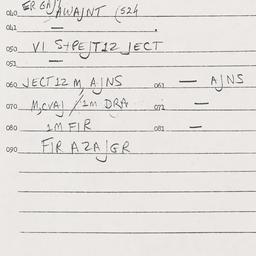 040 AWAJNT (524
041 —
050 VI S+PEJT12 JECT
051 —
060 JECT12 M AJNS 061 — AJNS
070 M,CVAJ / 1M DRA 071 —
080 1M FIR 081 —
090 FIR AZAJGR